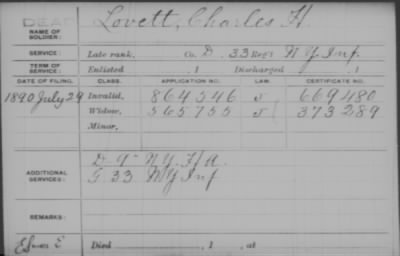 DEAD
NAME OF SOLDIER: Lovett, Charles H.
SERVICE: Late rank, Co. D, 33 Reg't N Y Inf.
TERM OF SERVICE: Enlisted , 1 Discharged , 1
DATE OF FILING. CLASS. APPLICATION NO. LAW. CERTIFICATE NO.
1890 July 29 Invalid, 864546 J 669480
Widow, 565755 J 373289
Minor,
ADDITIONAL SERVICES: D 9" N.Y. H A.
G 33 N Y Inf
REMARKS:
Died , 1 , at